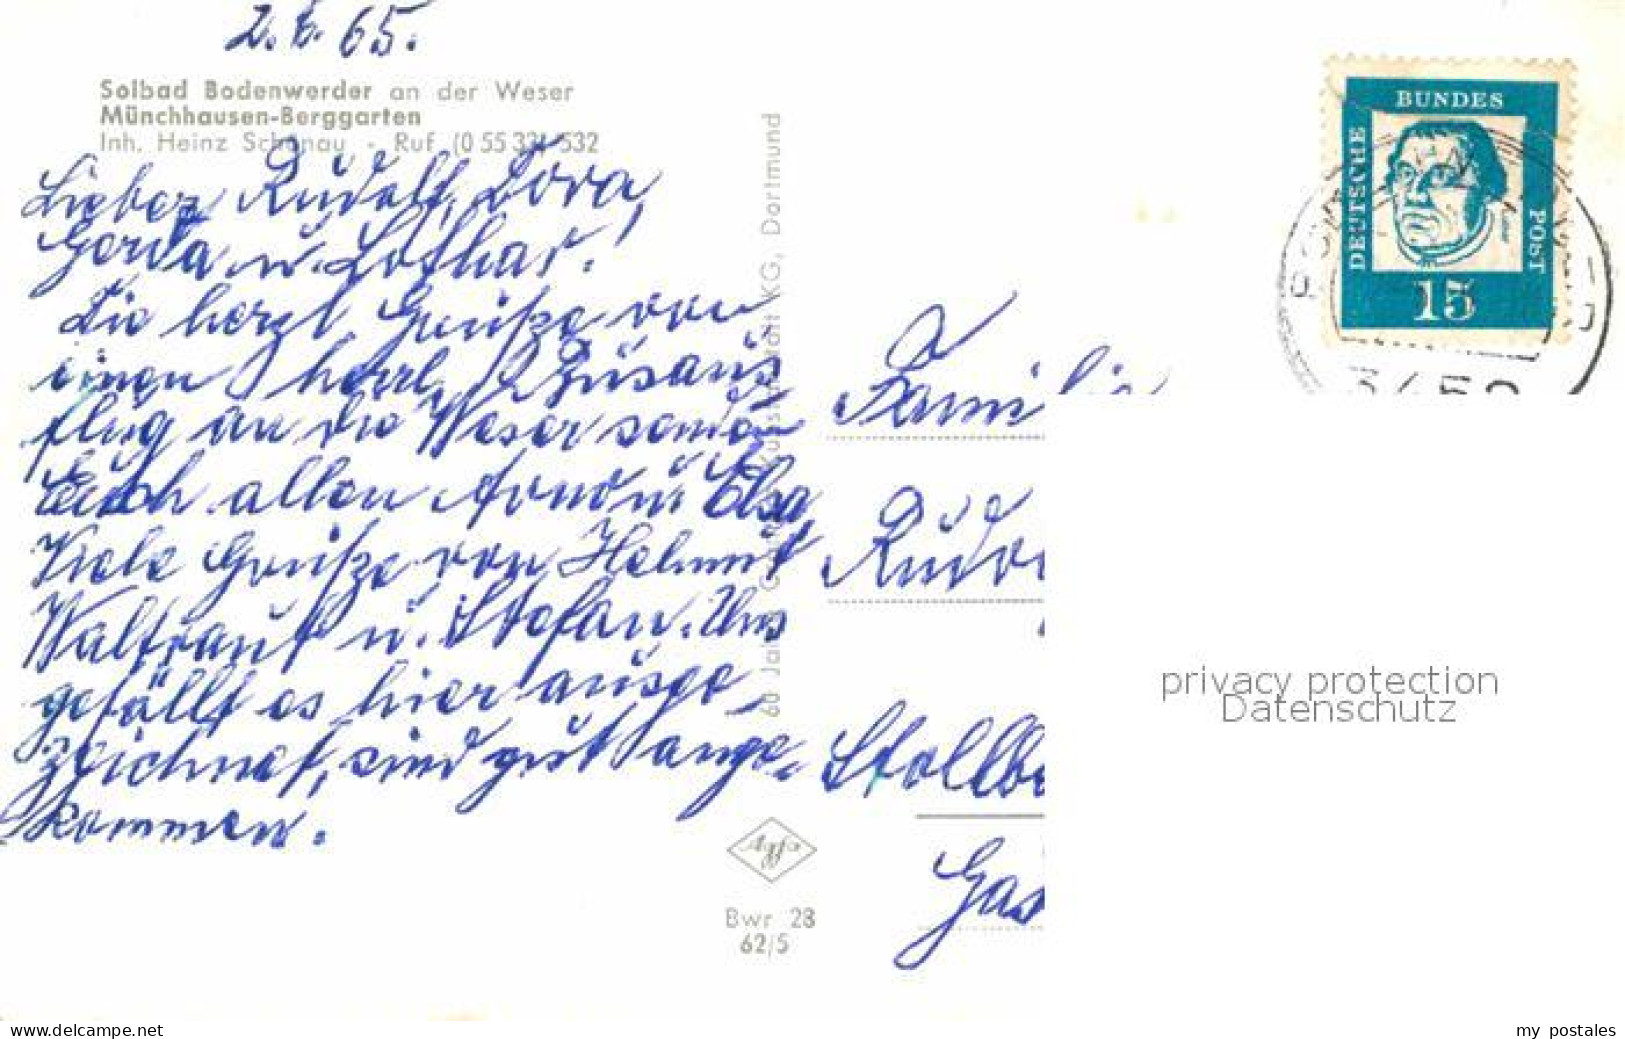 2.6.65.
Solbad Bodenwerder an der Weser
Münchhausen-Berggarten
Inh. Heinz Schönau - Ruf (0 55 33) 532
Lieber Rudolf, Dora,
Gerda u. Lothar!
Die herzl. Grüße von
einem herrl. Busaus
flug an die Weser senden
Euch allen Arno u. Elsa
Viele Grüße von Helmut
Waltraut u. Stefan. Uns
gefällt es hier ausge-
zeichnet, sind gut ange-
kommen.
60 Jahre Kunstanstalt KG, Dortmund
Agfa
Bwr 28
62/5
BUNDES
DEUTSCHE
POST
15
3452
Familie
Rudo
Stollb
Gas
privacy protection
Datenschutz
www.delcampe.net
my postales